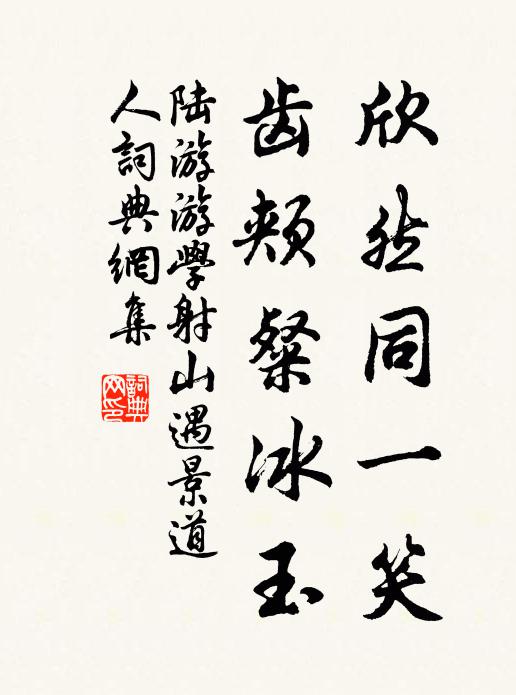 欣然同一笑
齿颊粲冰玉
陆游游學射山遇景道
人詞典網集
詞典網印